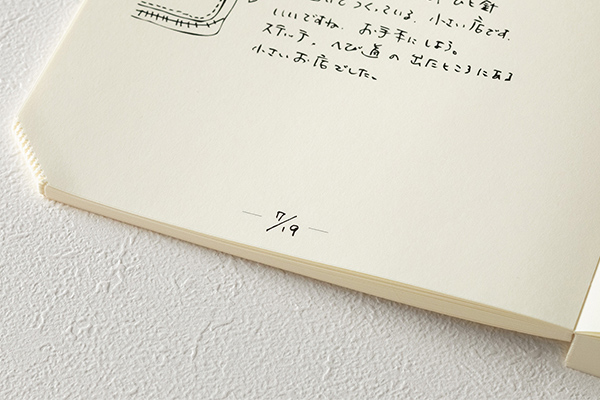 ひと針
つくっている。小さい店です。
いいですね。お手本にしよう。
ステッチ。へび道の出たところにある
小さいお店でした。
7/19